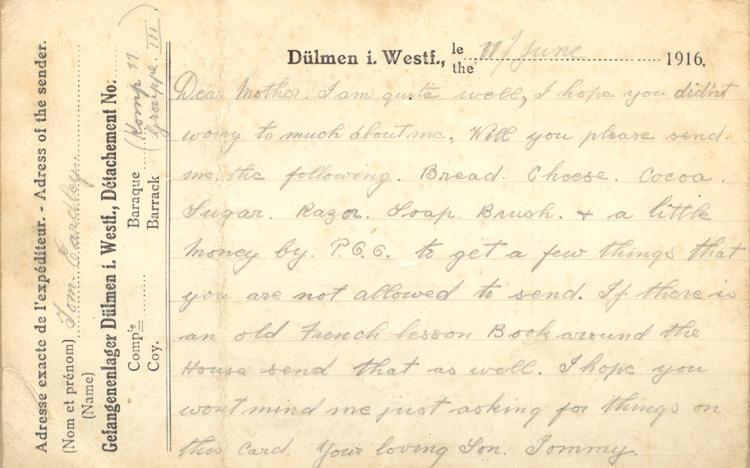 Dülmen i. Westf., le the 11/June 1916.
Dear Mother. I am quite well, I hope you didn't
worry to much about me, Will you please send
me, the following. Bread. Cheese. Cocoa.
Sugar. Razor. Soap. Brush. & a little
money by. P.O.O. to get a few things that
you are not allowed to send. If there is
an old French lesson Book around the
House send that as well. I hope you
wont mind me just asking for things on
this Card. Your loving Son. Tommy.
Adresse exacte de l'expéditeur. - Adress of the sender.
(Nom et prénom) Tom Eardley
(Name)
Gefangenenlager Dülmen i. Westf., Détachement No:
Compie Baraque (Komp 11
Coy. Barrack Gruppe. III)